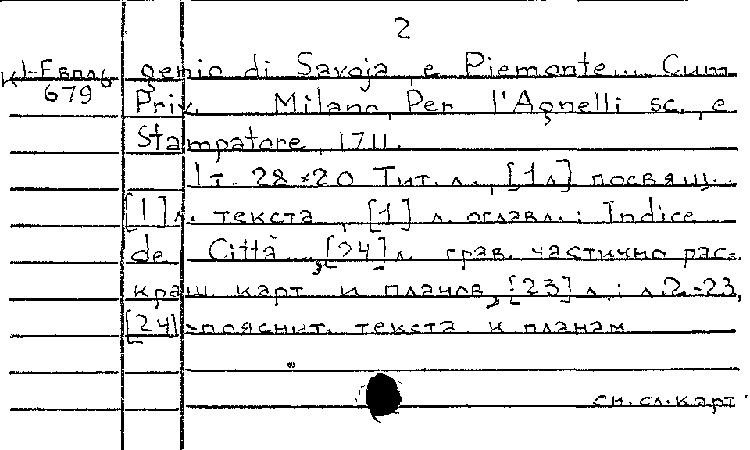 2
К1-Европ genio di Savoja e Piemonte... Cum
679 Priv. Milano, Per l'Agnelli sc. e
Stampatore, 1711.
1 т. 28×20 Тит. л., [1 л] посвящ.
[1] л. текста, [1] л. оглавл.: Indice
de Città, [24] л. грав. частично рас-
краш карт и планов, [23] л.: л. 2-23,
[24] - пояснит. текста к планам
см. сл. карт.